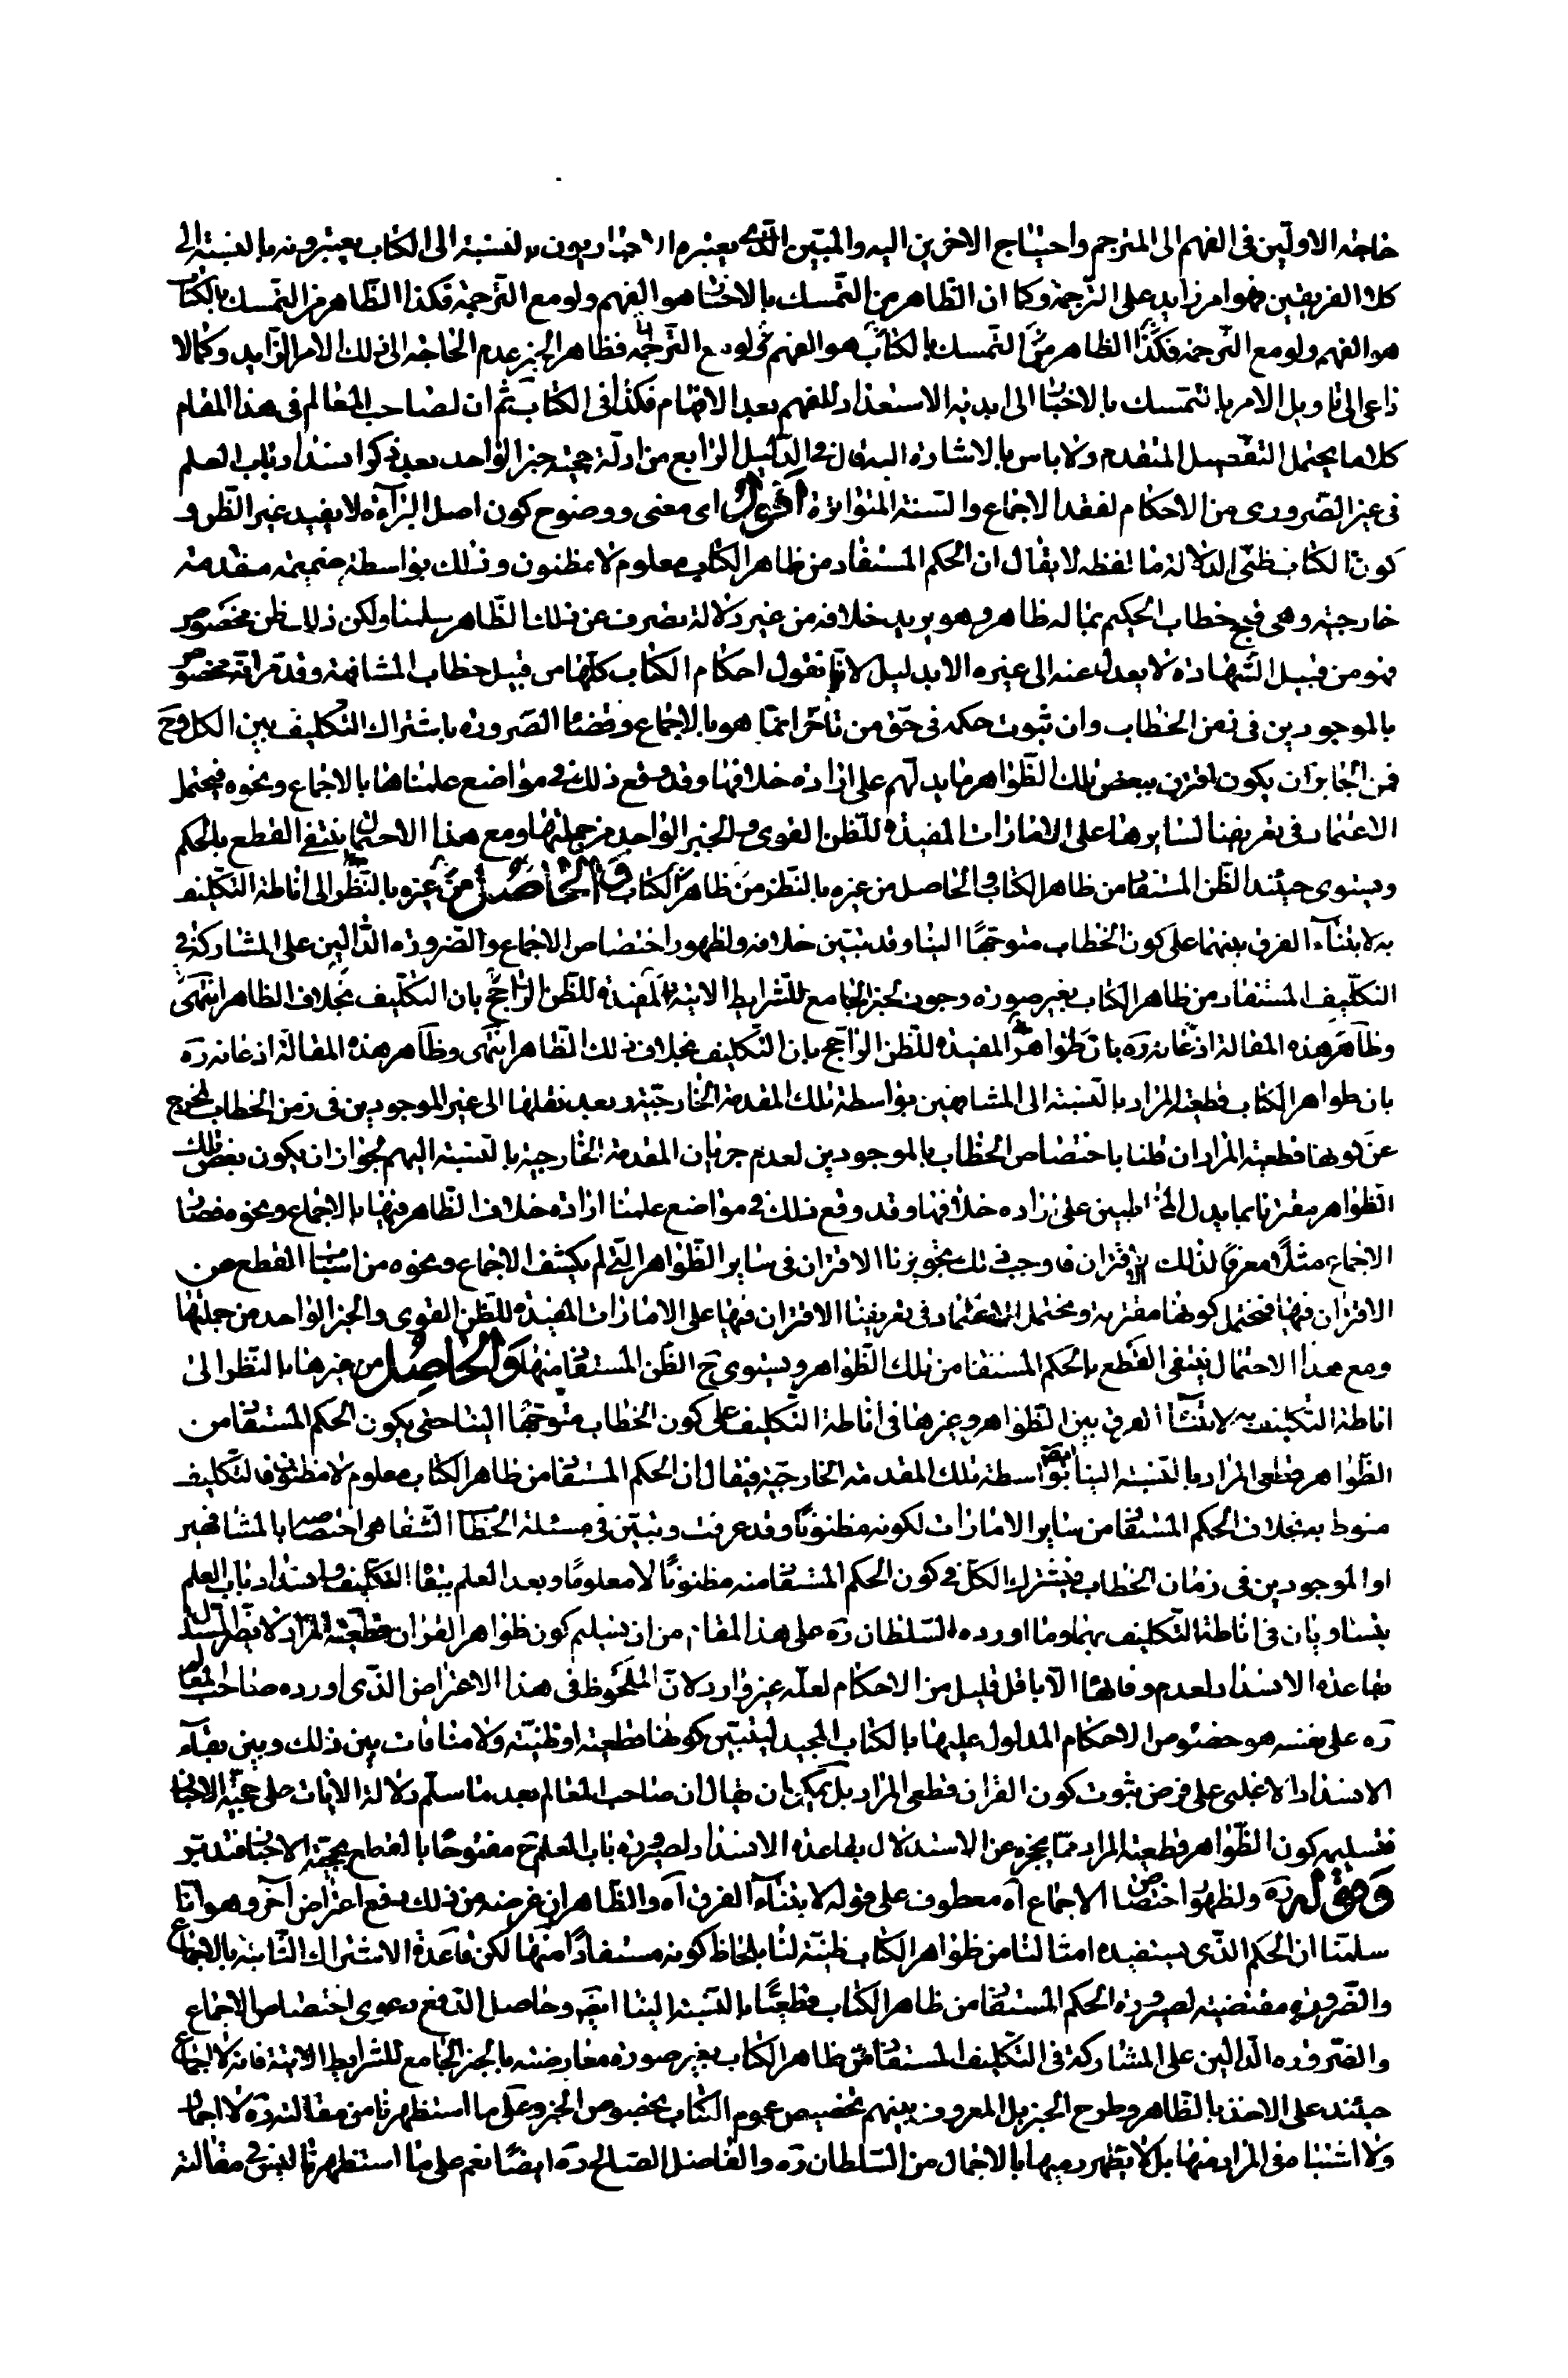 حاجة الاولين فى الفهم الى المترجم واحتياج الاخرين اليه والمتيين الذى يعتبره الاخباريون بالنسبة الى الكتاب يعتبرونه بالنسبة الى
كلا الفريقين فهو امر زايد على الترجمة وكما ان الظاهر من التمسك بالاخبار هو الفهم ولو مع الترجمة فكذا الظاهر من التمسك بالكتاب
هو الفهم ولو مع الترجمة فكذا الظاهر من التمسك بالكتاب هو الفهم ولو مع الترجمة فظاهر الخبر عدم الحاجة الى ذلك الامر الزايد وكما لا
داعى الى تاويل الامر بالتمسك بالاخبار الى ابدية الاستعداد للفهم بعد الافهام فكذا فى الكتاب ثم ان لصاحب المعالم فى هذا المقام
كلاما يحتمل التفصيل المتقدم ولا باس بالاشارة اليه قال فى الدليل الرابع من ادلة حجية خبر الواحد بعد ذكر انسداد باب العلم
فى غير الضرورى من الاحكام لفقد الاجماع والسنة المتواترة اقول اى معنى ووضوح كون اصل البراءة لا يفيد غير الظن و
كون الكتاب ظنى الدلالة ما لفظه لا يقال ان الحكم المستفاد من ظاهر الكتاب معلوم لا مظنون وذلك بواسطة ضميمة مقدمة
خارجية وهى قبح خطاب الحكيم بما له ظاهر وهو يريد خلافه من غير دلالة تصرف عن ذلك الظاهر سلمنا ولكن ذلك ظن مخصوص
فهو من قبيل الشهادة لا يعدل عنه الى غيره الا بدليل لانا نقول احكام الكتاب كلها من قبيل خطاب المشافهة وقد مر انه مخصوص
بالموجودين فى زمن الخطاب وان ثبوت حكمه فى حق من تاخر انما هو بالاجماع وقضاء الضرورة باشتراك التكليف بين الكل وح
فمن الجايز ان يكون اقترن ببعض تلك الظواهر ما يدلهم على ارادة خلافها وقد وقع ذلك فى مواضع علمناها بالاجماع ونحوه فيحتمل
الاعتماد فى تعريفنا لسايرها على الامارات المفيدة للظن القوى والخبر الواحد من جملتها ومع هذا الاحتمال ينتفى القطع بالحكم
ويستوى حينئذ الظن المستفاد من ظاهر الكتاب والحاصل من غيره بالنظر من ظاهر الكتاب والحاصل من غيره بالنظر الى اناطة التكليف
به لابتناء الفرق بينهما على كون الخطاب متوجها الينا وقد تبين خلافه ولظهور اختصاص الاجماع والضرورة الدالين على المشاركة فى
التكليف المستفاد من ظاهر الكتاب بغير صورة وجود الخبر الجامع للشرايط الاتية المفيدة للظن الراجح بان التكليف بخلاف الظاهر انتهى
وظاهر هذه المقالة اذعانه ره بان ظواهر المفيدة للظن الراجح بان التكليف بخلاف ذلك الظاهر انتهى وظاهر هذه المقالة اذعانه ره
بان ظواهر الكتاب قطعية المراد بالنسبة الى المشافهين بواسطة تلك المقدمة الخارجية وبعد نقلها الى غير الموجودين فى زمن الخطاب تخرج
عن كونها قطعية المراد ان قلنا باختصاص الخطاب بالموجودين لعدم جريان المقدمة الخارجية بالنسبة اليهم لجواز ان يكون بعض تلك
الظواهر مقترنا بما يدل المخاطبين على ارادة خلافها وقد وقع ذلك فى مواضع علمنا ارادة خلاف الظاهر فيها بالاجماع ونحوه فصار
الاجماع مثلا معرفا لذلك الاقتران فاوجب ذلك تجويزنا الاقتران فى ساير الظواهر التى لم يكشف الاجماع ونحوه من اسباب القطع عن
الاقتران فيها فنحتمل كونها مقترنة ونحتمل الاعتماد فى تعريفنا الاقتران فيها على الامارات المفيدة للظن القوى والخبر الواحد من جملتها
ومع هذا الاحتمال ينتفى القطع بالحكم المستفاد من تلك الظواهر ويستوى ح الظن المستفاد منها والحاصل من غيرها بالنظر الى
اناطة التكليف به لابتناء الفرق بين الظواهر وغيرها فى اناطة التكليف على كون الخطاب متوجها الينا حتى يكون الحكم المستفاد من
الظواهر قطعى المراد بالنسبة الينا ايضا بواسطة تلك المقدمة الخارجية فيقال ان الحكم المستفاد من ظاهر الكتاب معلوم لا مظنون فالتكليف
منوط به بخلاف الحكم المستفاد من ساير الامارات لكونه مظنونا وقد عرفت وتبين فى مسئلة الخطاب الشفاهى اختصاصه بالمشافهين
او الموجودين فى زمان الخطاب فيشترك الكل فى كون الحكم المستفاد منه مظنونا لا معلوما وبعد العلم ببقاء التكليف وانسداد باب العلم
يتساويان فى اناطة التكليف بهما وما اورده السلطان ره على هذا المقام من ان تسليم كون ظواهر القران قطعية المراد لا يضر
بقاعدة الانسداد لعدم وفائها الا باقل قليل من الاحكام لعله غير وارد لان الملحوظ فى هذا الاعتراض الذى اورده صاحب المعالم
ره على نفسه هو خصوص الاحكام المدلول عليها بالكتاب المجيد ليتبين كونها قطعية او ظنية ولا منافات بين ذلك وبين بقاء
الانسداد الاغلبى على فرض ثبوت كون القران قطعى المراد بل يمكن ان يقال ان صاحب المعالم بعد ما سلم دلالة الايات على حجية الاخبار
فتسليمه كون الظواهر قطعية المراد مما يخرجه عن الاستدلال بقاعدة الانسداد لصيرورة باب العلم ح مفتوحا بالقطع بحجية الاخبار فتدبر
وقوله ره ولظهور اختصاص الاجماع اه معطوف على قوله لابتناء الفرق اه والظاهر ان غرضه من ذلك دفع اعتراض آخر وهو انا
سلمنا ان الحكم الذى يستفيده امثالنا من ظواهر الكتاب ظنية لنا بلحاظ كونه مستفادا منها لكن قاعدة الاشتراك الثابتة بالاجماع
والضرورة مقتضية لصيرورة الحكم المستفاد من ظاهر الكتاب قطعيا بالنسبة الينا ايضا وحاصل الدفع دعوى اختصاص الاجماع
والضرورة الدالين على المشاركة فى التكليف المستفاد من ظاهر الكتاب بغير صورة معارضته بالخبر الجامع للشرايط الاتية فانه لا اجماع
حينئذ على الاخذ بالظاهر وطرح الخبر بل المعروف بينهم تخصيص عموم الكتاب بخصوص الخبر وعلى ما استظهرنا من مقالته ره لا اجمال
ولا اشتباه فى المراد منها بل لا يظهر رميها بالاجمال من السلطان ره والفاضل الصالح ره ايضا نعم على ما استظهرنا ليس فى مقالته